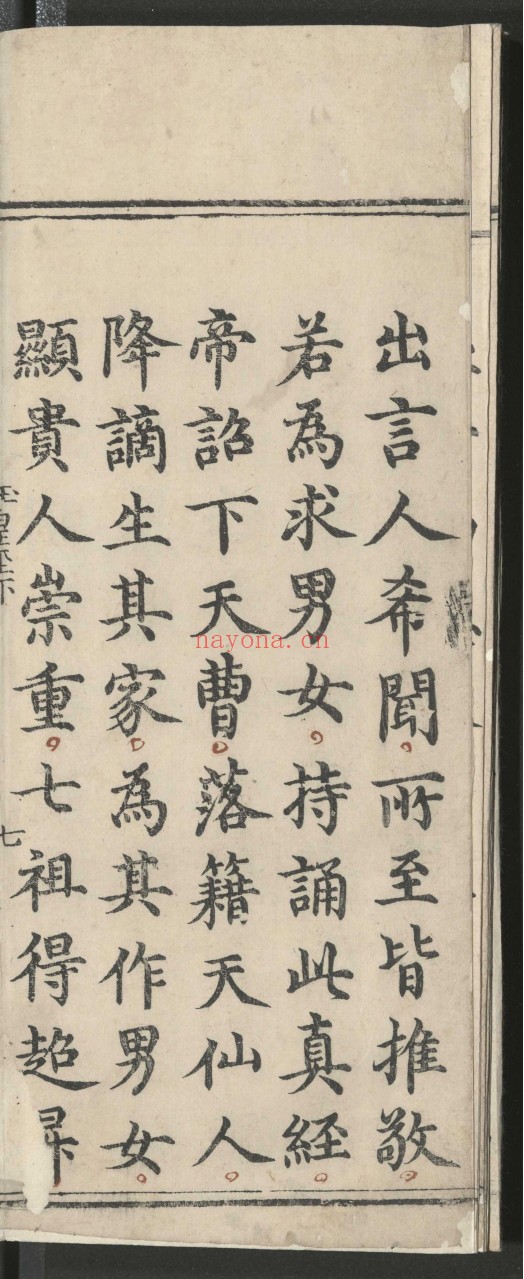 出言人希聞所至皆推敬
若為求男女持誦此真經
帝詔下天曹落籍天仙人
降謫生其家為其作男女
顯貴人崇重七祖得超昇
七
nayona.cn